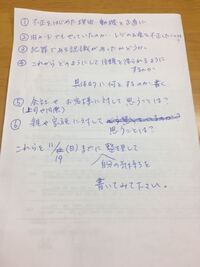 ① 不正をはじめた理由、動機と正直に
② 何の
③ 犯罪である認識があったかどうか
④ これからどのようにして信頼を得られるように するのか
具体的に何をするのか書く
⑤ 会社やお客様に対して思うことは?
(上司や同僚)
⑥ 親や家族に対して
思うことは?
これらを 11/19 (日)までに整理して
自分の気持ちを
書いてみて下さい。